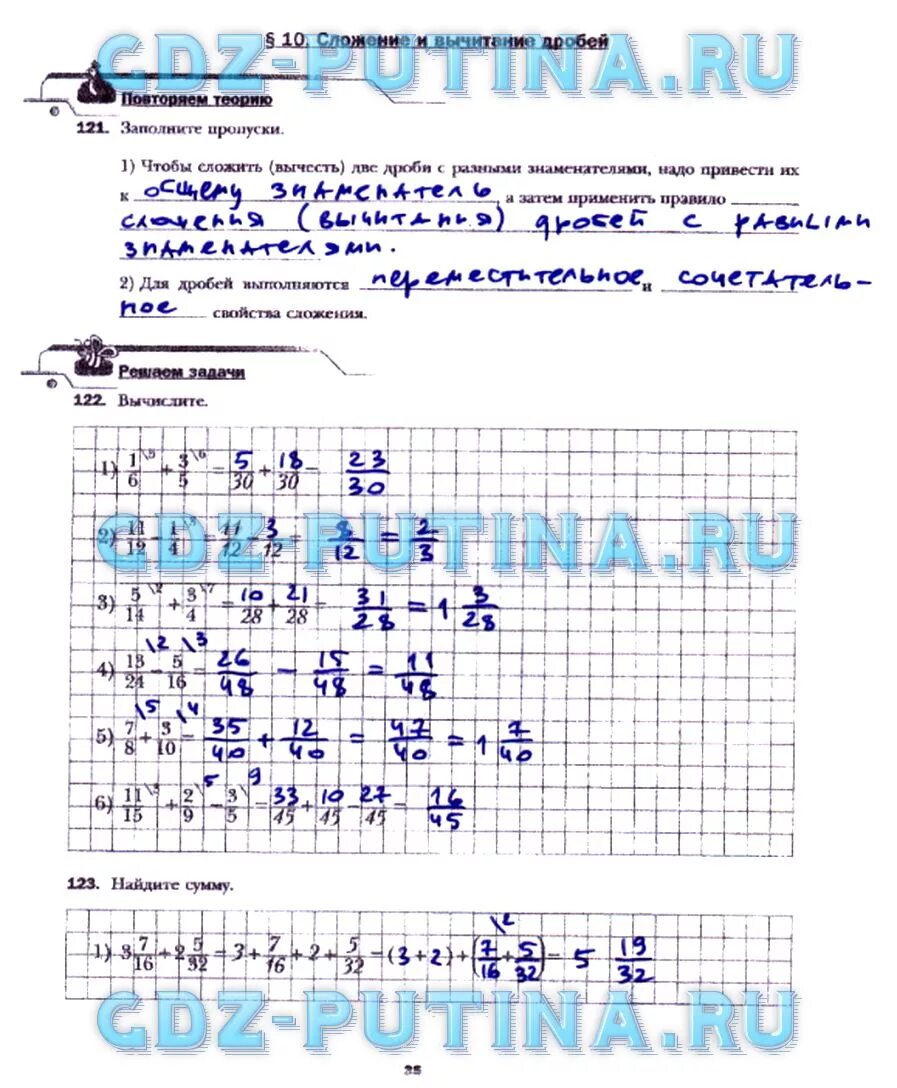 § 10. Сложение и вычитание дробей
GDZ-PUTINA.RU
Повторяем теорию
121. Заполните пропуски.
1) Чтобы сложить (вычесть) две дроби с разными знаменателями, надо привести их
к общему знаменатель, а затем применить правило
сложения (вычитания) дробей с равными
знаменателями.
2) Для дробей выполняются переместительное и сочетатель-
ное свойства сложения.
Решаем задачи
122. Вычислите.
1) 1/6 \5 + 3/5 \6 = 5/30 + 18/30 = 23/30
2) 11/12 − 1/4 \3 = 11/12 − 3/12 = 8/12 = 2/3
GDZ-PUTINA.RU
3) 5/14 \2 + 3/4 \7 = 10/28 + 21/28 = 31/28 = 1 3/28
4) 13/24 \2 − 5/16 \3 = 26/48 − 15/48 = 11/48
5) 7/8 \5 + 3/10 \4 = 35/40 + 12/40 = 47/40 = 1 7/40
6) 11/15 \3 + 2/9 \5 − 3/5 \9 = 33/45 + 10/45 − 27/45 = 16/45
123. Найдите сумму.
1) 3 7/16 + 2 5/32 = 3 + 7/16 + 2 + 5/32 = (3 + 2) + (7/16 \2 + 5/32) = 5 19/32
GDZ-PUTINA.RU